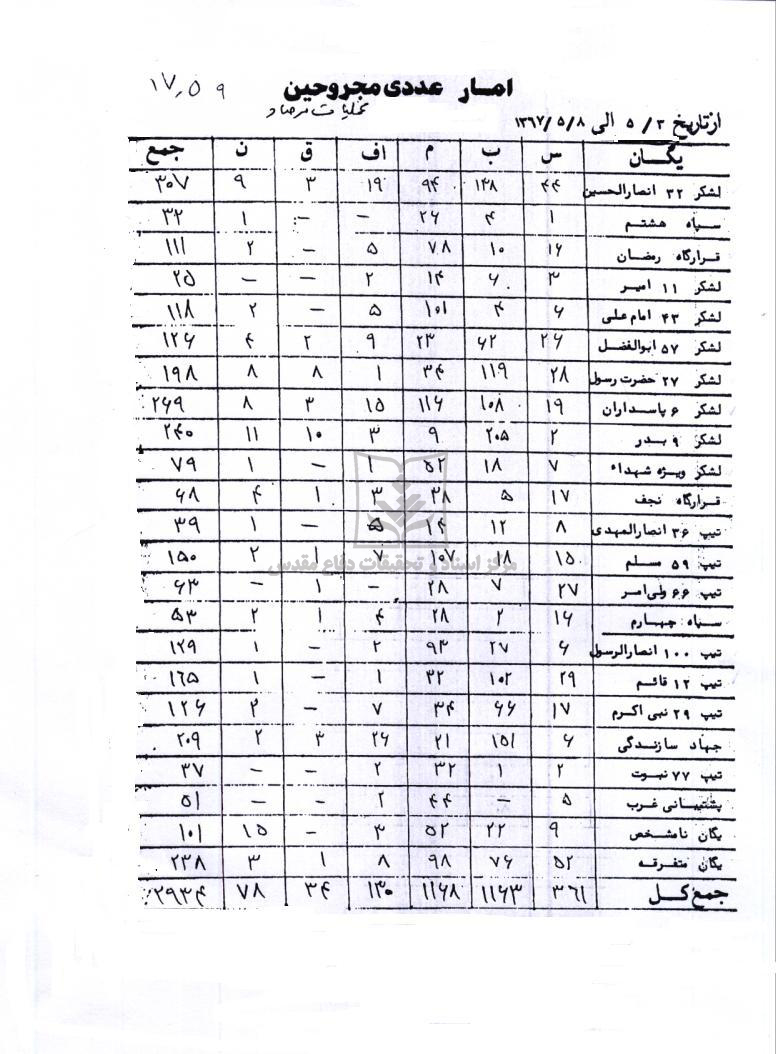 ۱۷,۵۹
امار عددی مجروحین
عملیات مرصاد
از تاریخ ۵/۳ الی ۱۳۶۷/۵/۸
یگان س ب م اف ق ن جمع
لشکر ۳۲ انصارالحسین ۴۴ ۱۳۸ ۹۴ ۱۹ ۳ ۹ ۳۰۷
سپاه هشتم ۱ ۴ ۲۶ – – ۱ ۳۲
قرارگاه رمضان ۱۶ ۱۰ ۷۸ ۵ – ۲ ۱۱۱
لشکر ۱۱ امیر ۳ ۶ ۱۴ ۲ – – ۲۵
لشکر ۴۳ امام علی ۶ ۴ ۱۰۱ ۵ – ۲ ۱۱۸
لشکر ۵۷ ابوالفضل ۲۶ ۶۲ ۲۳ ۹ ۲ ۴ ۱۲۶
لشکر ۲۷ حضرت رسول ۲۸ ۱۱۹ ۳۴ ۱ ۸ ۸ ۱۹۸
لشکر ۶ پاسداران ۱۹ ۱۰۸ ۱۱۶ ۱۵ ۳ ۸ ۲۶۹
لشکر ۹ بدر ۲ ۲۰۵ ۹ ۳ ۱۰ ۱۱ ۲۴۰
لشکر ویژه شهداء ۷ ۱۸ ۵۲ ۱ – ۱ ۷۹
قرارگاه نجف ۱۷ ۵ ۳۸ ۳ ۱ ۴ ۶۸
تیپ ۳۶ انصارالمهدی ۸ ۱۲ ۱۴ ۵ – ۱ ۳۹
تیپ ۵۹ مسلم ۱۵ ۱۸ ۱۰۷ ۷ ۱ ۲ ۱۵۰
مرکز اسناد و تحقیقات دفاع مقدس
تیپ ۶۶ ولی امر ۲۷ ۷ ۲۸ – ۱ – ۶۳
سپاه چهارم ۱۶ ۲ ۲۸ ۴ ۱ ۲ ۵۳
تیپ ۱۰۰ انصارالرسول ۶ ۲۷ ۹۳ ۲ – ۱ ۱۲۹
تیپ ۱۲ قائم ۲۹ ۱۰۲ ۳۲ ۱ – ۱ ۱۶۵
تیپ ۲۹ نبی اکرم ۱۷ ۶۶ ۳۴ ۷ – ۲ ۱۲۶
جهاد سازندگی ۶ ۱۵۱ ۲۱ ۲۶ ۳ ۲ ۲۰۹
تیپ ۷۷ نبوت ۲ ۱ ۳۲ ۲ – – ۳۷
پشتیبانی غرب ۵ – ۴۴ ۲ – – ۵۱
یگان نامشخص ۹ ۲۲ ۵۲ ۳ – ۱۵ ۱۰۱
یگان متفرقه ۵۲ ۷۶ ۹۸ ۸ ۱ ۳ ۲۳۸
جمع کل ۳۶۱ ۱۱۶۳ ۱۱۶۸ ۱۳۰ ۳۴ ۷۸ ۲۹۳۴